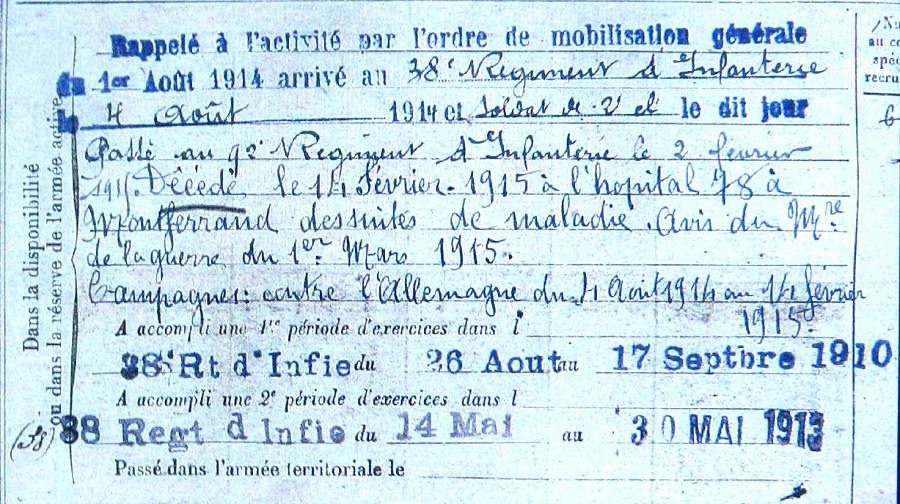 Rappelé à l'activité par l'ordre de mobilisation générale
du 1er Août 1914 arrivé au 38e Régiment d'Infanterie
le 4 Août 1914 et soldat de 2e cl le dit jour
Passé au 92e Régiment d'Infanterie le 2 février
1915. Décédé le 14 Février 1915 à l'hopital 78 à
Montferrand des suites de maladie. Avis du Mre
de la guerre du 1er Mars 1915.
Campagnes: contre l'Allemagne du 4 Août 1914 au 14 février
1915.
A accompli une 1re période d'exercices dans l
38e Rt d'Infie du 26 Aout au 17 Septbre 1910
A accompli une 2e période d'exercices dans l
38 Regt d Infie du 14 Mai au 30 MAI 1913
Passé dans l'armée territoriale le
Dans la disponibilité
ou dans la réserve de l'armée active
au co
spéc
recru
6